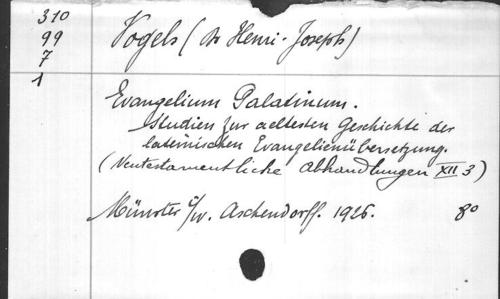 310
99
7
1
Vogels (Dr Henri-Joseph)
Evangelium Palatinum.
Studien zur aeltesten Geschichte der
lateinischen Evangelienübersetzung.
(Neutestamentliche Abhandlungen XII 3)
Münster i/W. Aschendorff. 1926. 8o